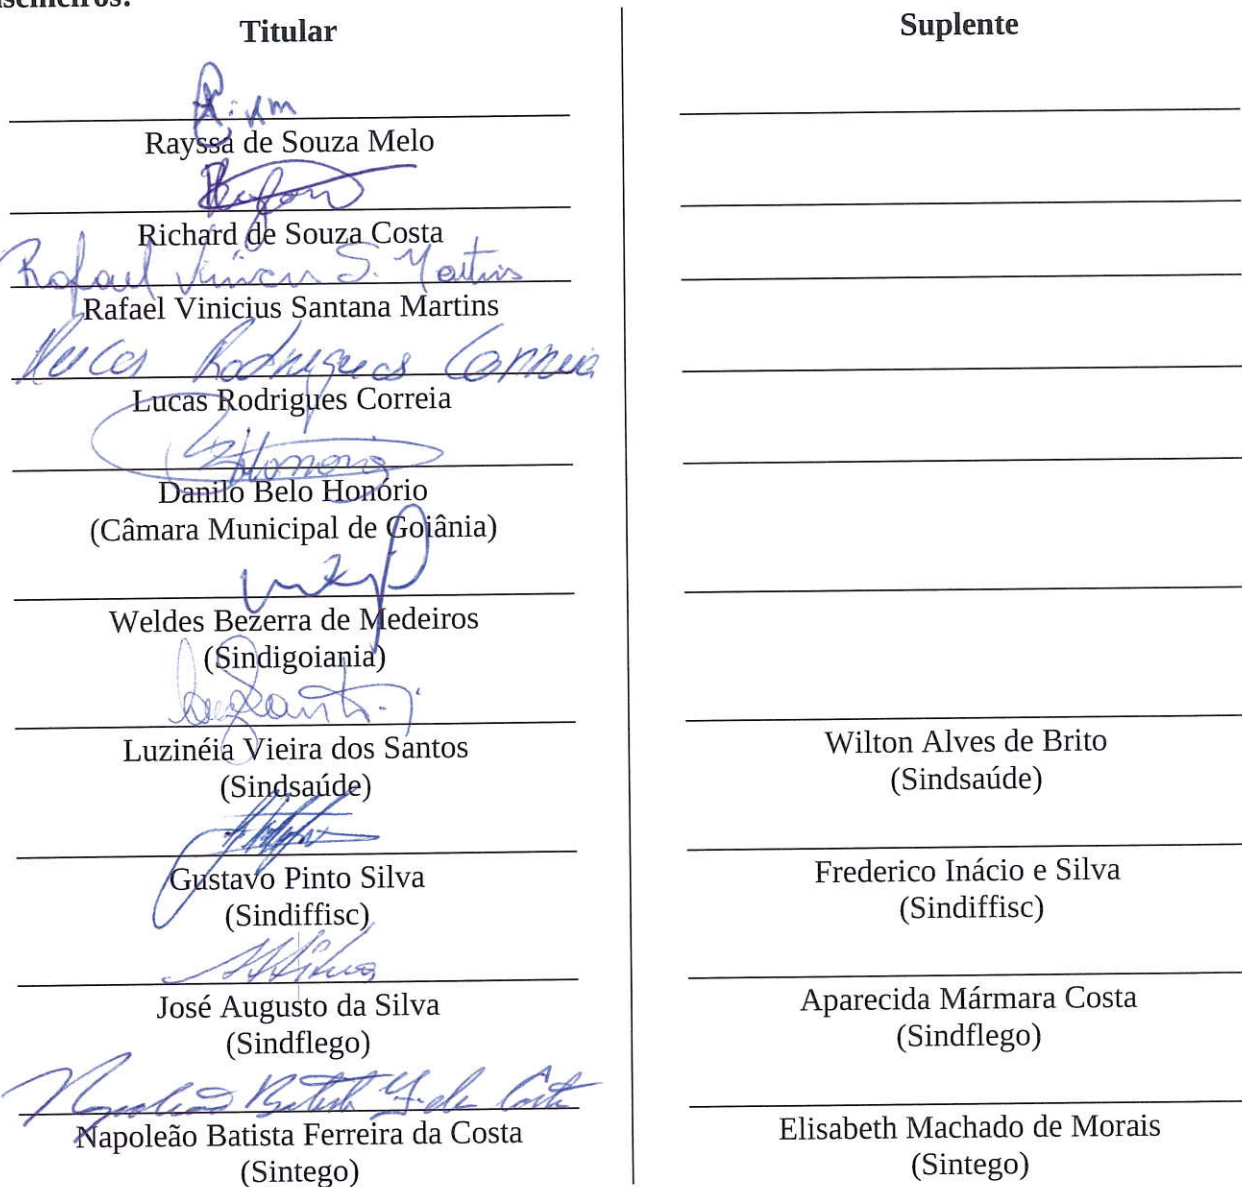 Titular
Rayssa de Souza Melo
Richard de Souza Costa
Rafael Vinicius S. Martins
Rafael Vinicius Santana Martins
Lucas Rodrigues Correia
Lucas Rodrigues Correia
Honorio
Danilo Belo Honório
(Câmara Municipal de Goiânia)
Weldes Bezerra de Medeiros
(Sindigoiania)
Luzinéia Vieira dos Santos
(Sindsaúde)
Gustavo Pinto Silva
(Sindiffisc)
José Augusto da Silva
(Sindflego)
Napoleão Batista F. da Costa
Napoleão Batista Ferreira da Costa
(Sintego)
Suplente
Wilton Alves de Brito
(Sindsaúde)
Frederico Inácio e Silva
(Sindiffisc)
Aparecida Mármara Costa
(Sindflego)
Elisabeth Machado de Morais
(Sintego)